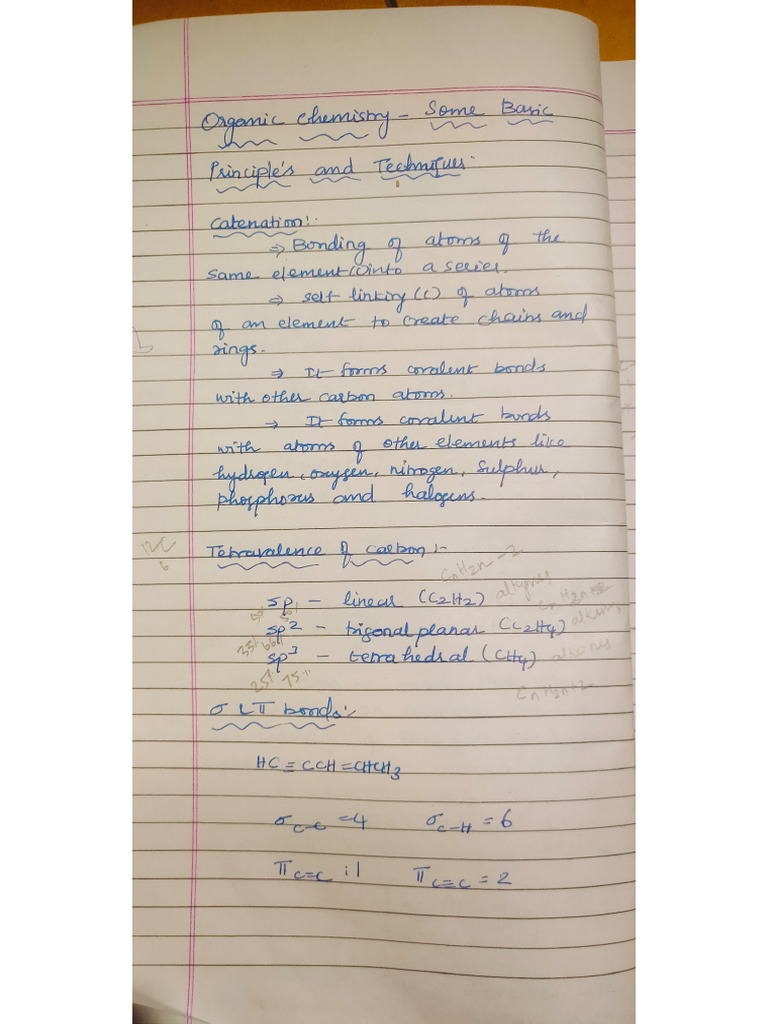 Organic Chemistry - Some Basic
Principle's and Techniques:
Catenation:-
⇒ Bonding of atoms of the
same element(c) into a series.
⇒ self linking (c) of atoms
of an element to create chains and
rings.
⇒ It forms covalent bonds
with other carbon atoms.
→ It forms covalent bonds
with atoms of other elements like
hydrogen, oxygen, nitrogen, Sulphur,
phosphorus and halogens.
12C
6
Tetravalence of carbon :-
CnH2n-2
sp - linear (C2H2) alkynes
50% 50%
sp2 - trigonal planar (C2H4)
sp3 - tetrahedral (CH4) alkanes
25% 75%
CnH2n+2
σ & π bonds:-
HC≡CCH=CHCH3
σ C-C =4 σ C-H = 6
π C=C :1 π C≡C = 2